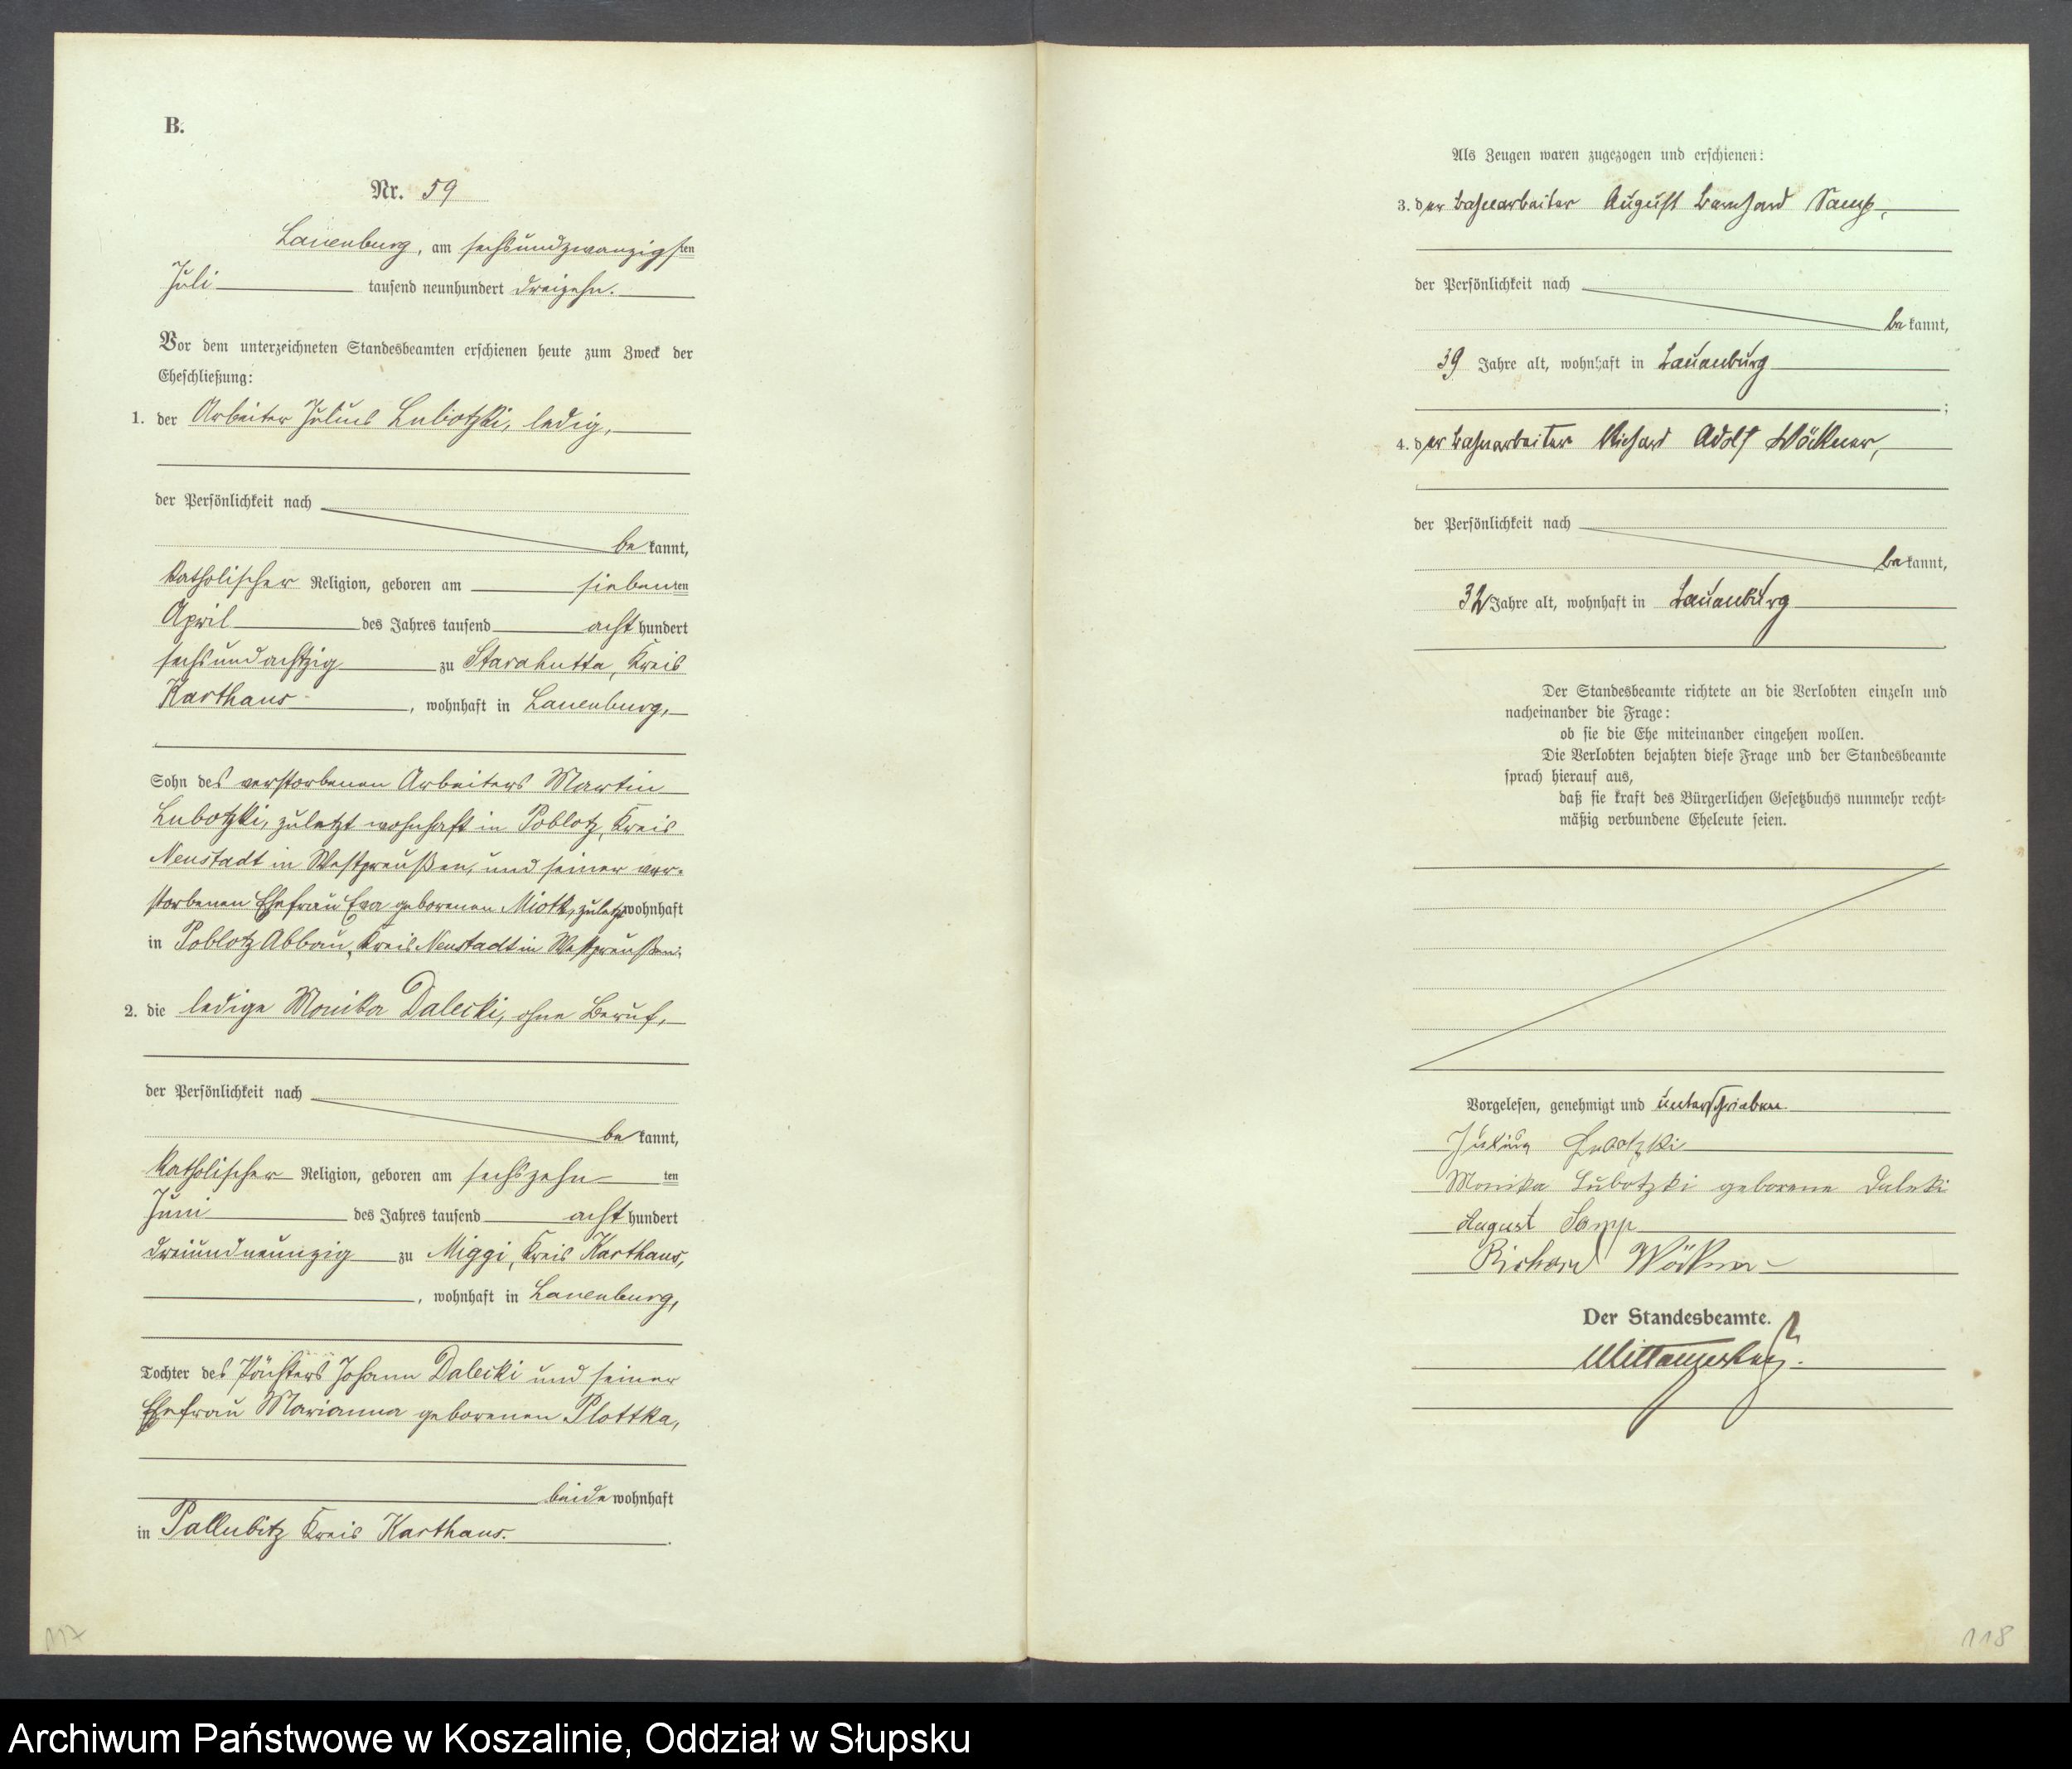 B.
Nr. 59
Lauenburg, am sechsundzwanzigsten
Juli tausend neunhundert dreizehn.
Vor dem unterzeichneten Standesbeamten erschienen heute zum Zweck der
Eheschließung:
1. der Arbeiter Julius Lubotzki, ledig,
der Persönlichkeit nach
bekannt,
katholischer Religion, geboren am siebenten
April des Jahres tausend achthundert
sechsundachtzig zu Starahutta, Kreis
Karthaus, wohnhaft in Lauenburg,
Sohn des verstorbenen Arbeiters Martin
Lubotzki, zuletzt wohnhaft in Poblotz, Kreis
Neustadt in Westpreußen, und seiner ver-
storbenen Ehefrau Eva geborenen Miotk, zuletzt wohnhaft
in Poblotz Abbau, Kreis Neustadt in Westpreußen.
2. die ledige Monika Dalecki, ohne Beruf,
der Persönlichkeit nach
bekannt,
katholischer Religion, geboren am sechszehnten
Juni des Jahres tausend achthundert
dreiundneunzig zu Miggi, Kreis Karthaus,
, wohnhaft in Lauenburg,
Tochter des Pächters Johann Dalecki und seiner
Ehefrau Marianna geborenen Plottka,
beide wohnhaft
in Pallubitz Kreis Karthaus.
117
Als Zeugen waren zugezogen und erschienen:
3. der Bahnarbeiter August Bernhard Samp,
der Persönlichkeit nach
bekannt,
39 Jahre alt, wohnhaft in Lauenburg
;
4. der Bahnarbeiter Richard Adolf Wöllner,
der Persönlichkeit nach
bekannt,
32 Jahre alt, wohnhaft in Lauenburg
Der Standesbeamte richtete an die Verlobten einzeln und
nacheinander die Frage:
ob sie die Ehe miteinander eingehen wollen.
Die Verlobten bejahten diese Frage und der Standesbeamte
sprach hierauf aus,
daß sie kraft des Bürgerlichen Gesetzbuchs nunmehr recht-
mäßig verbundene Eheleute seien.
Vorgelesen, genehmigt und unterschrieben
Julius Lubotzki
Monika Lubotzki geborene Daletki
August Samp
Richard
Der Standesbeamte.
118
Archiwum Państwowe w Koszalinie, Oddział w Słupsku